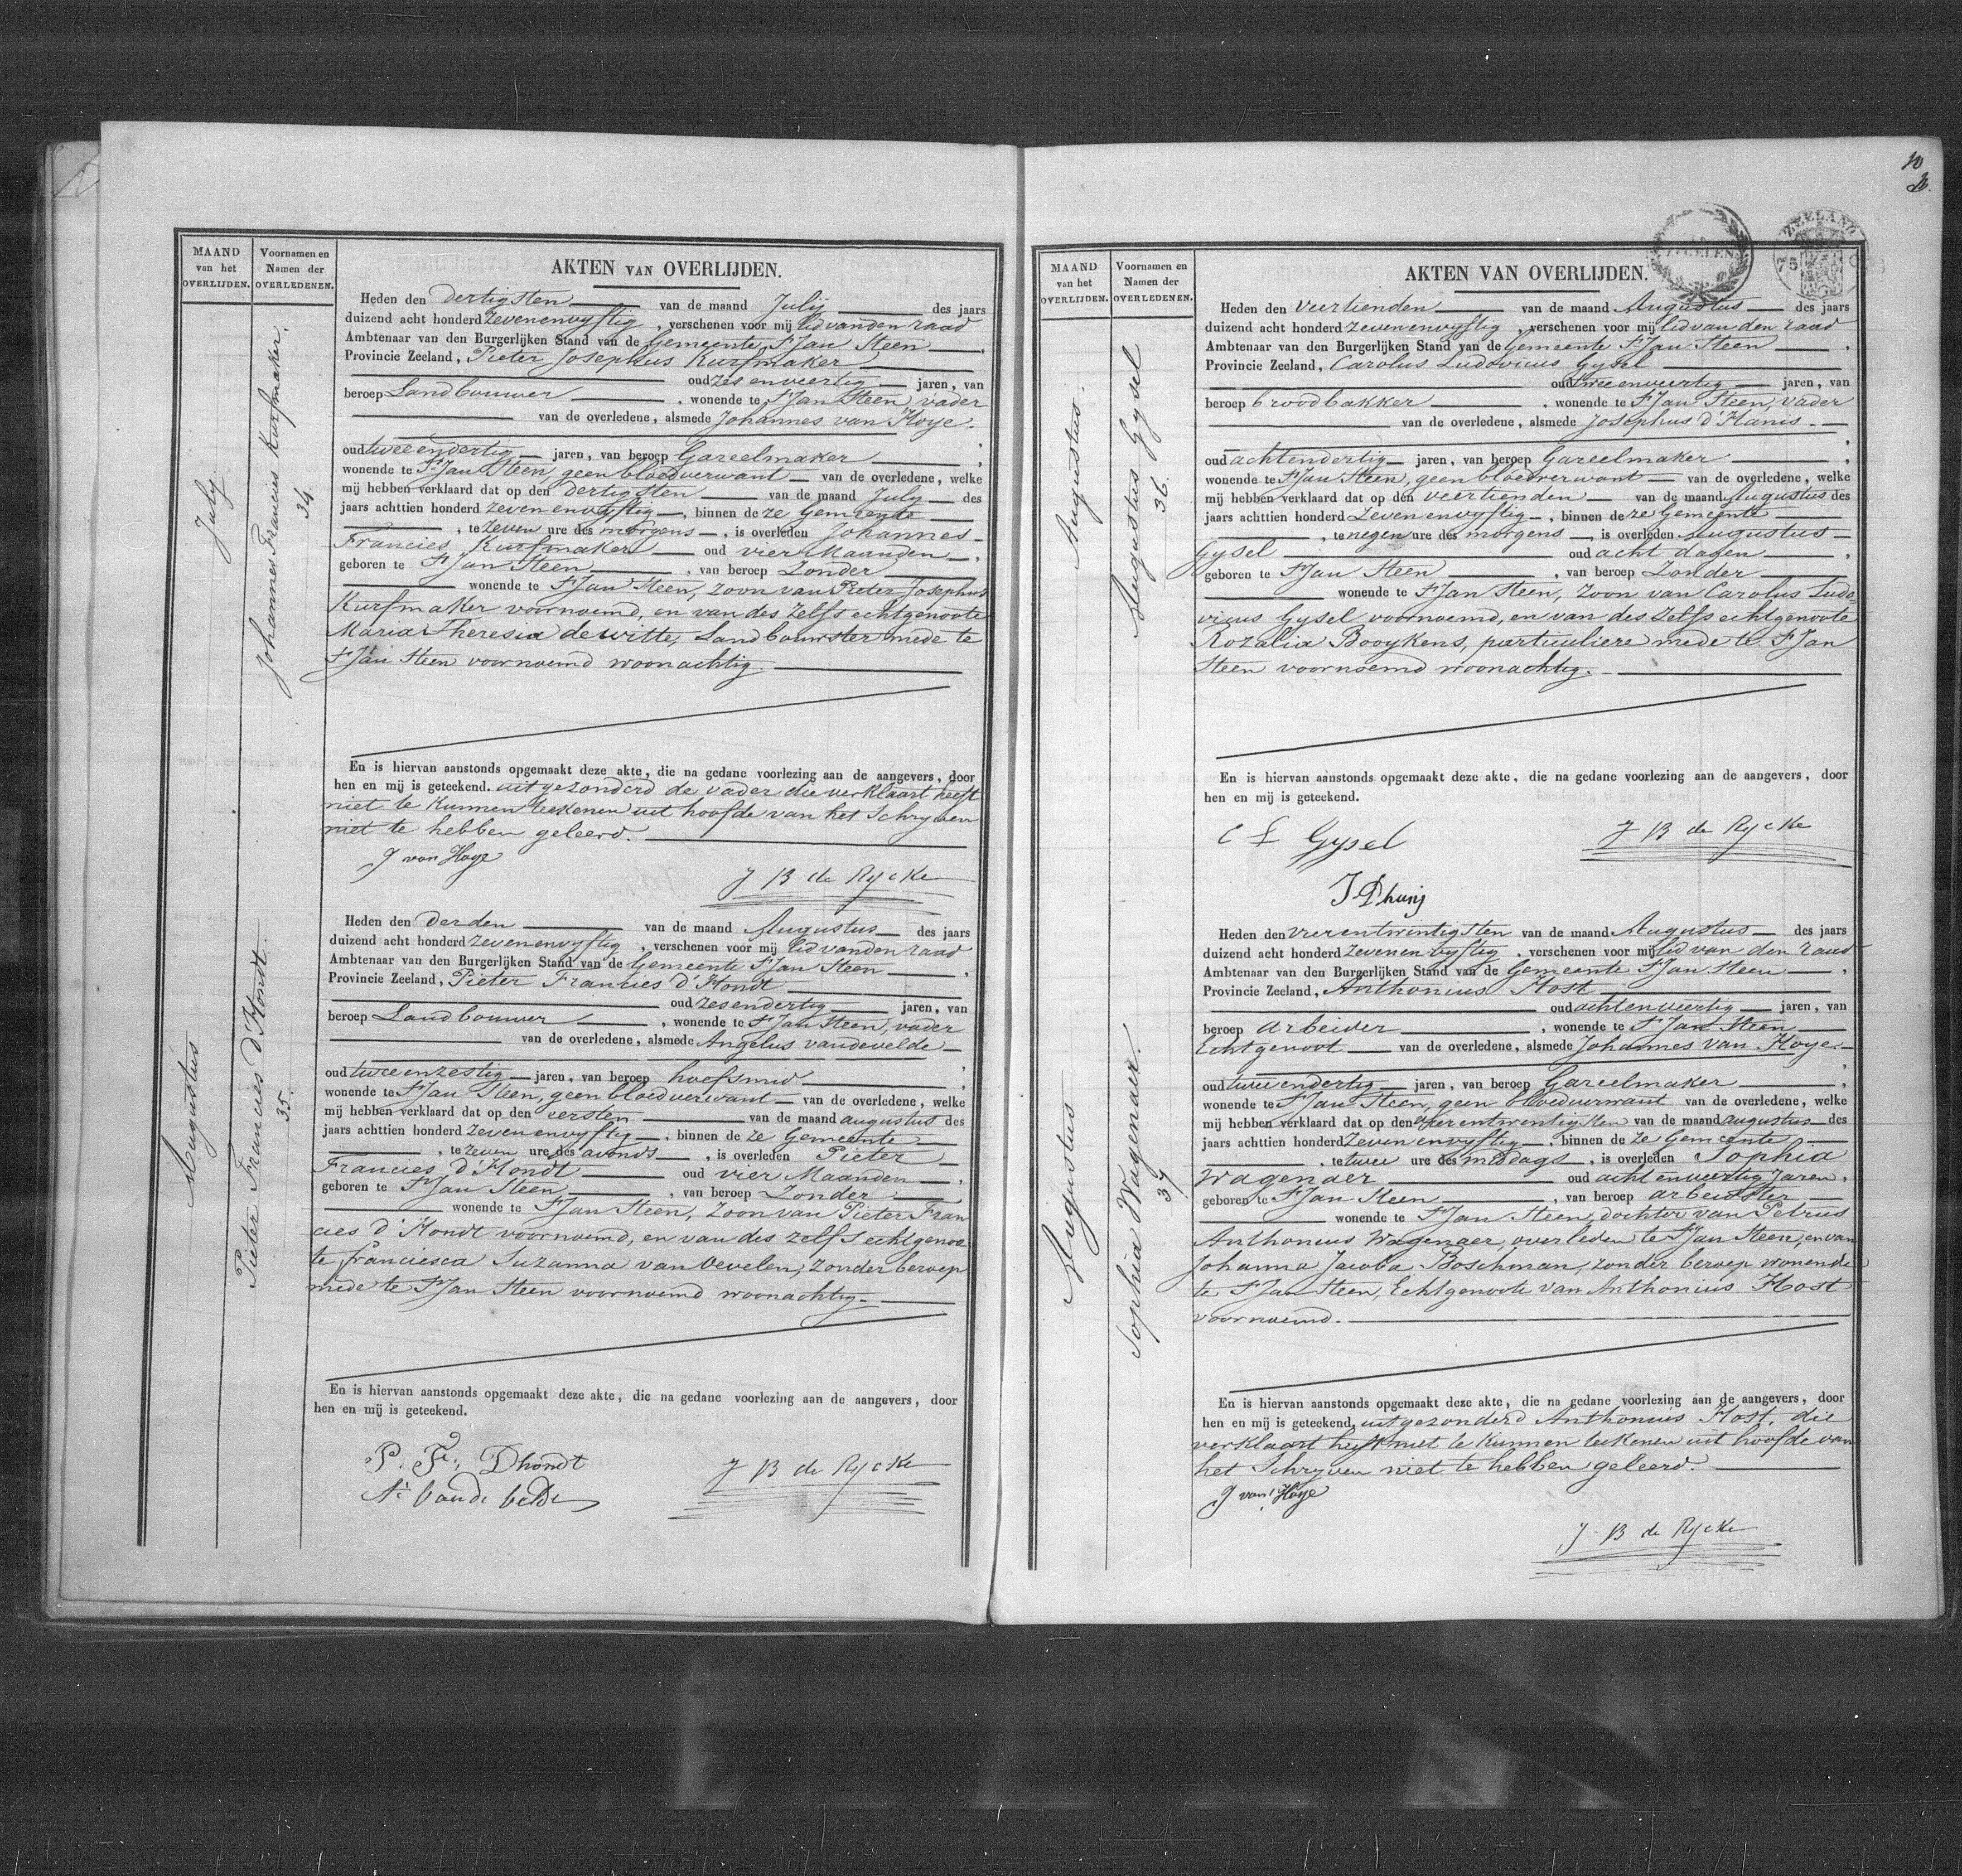 MAAND
van het
OVERLIJDEN.
Voornamen en
Namen der
OVERLEDENEN.
AKTEN VAN OVERLIJDEN.
July
Johannes Francies Kursmaker.
34.
Heden den dertigsten van de maand July des jaars
duizend acht honderd zevenenvyftig, verschenen voor mij lid van den raad
Ambtenaar van den Burgerlijken Stand van de Gemeente St Jan Steen,
Provincie Zeeland, Pieter Josephus Kursmaker
oud zesenveertig jaren, van
beroep Landbouwer, wonende te St Jan Steen, vader
van de overledene, alsmede Johannes van Hoye.
oud tweeendertig jaren, van beroep Gareelmaker,
wonende te St Jan Steen, geen bloedverwant van de overledene, welke
mij hebben verklaard dat op den dertigsten van de maand July des
jaars achttien honderd zevenenvyftig, binnen deze Gemeente
, te zeven ure des morgens, is overleden Johannes
Francies Kursmaker oud vier Maanden,
geboren te St Jan Steen, van beroep Zonder
wonende te St Jan Steen, zoon van Pieter Josephus
Kursmaker voornoemd, en van des zelfs echtgenoote
Maria Theresia de witte, Landbouwster mede te
St Jan Steen voornoemd woonachtig.
En is hiervan aanstonds opgemaakt deze akte, die na gedane voorlezing aan de aangevers, door
hen en mij is geteekend. uitgezonderd de vader die verklaart heeft
niet te kunnen teekenen uit hoofde van het Schryven
niet te hebben geleerd.
J van Hoye
J B de Rycke
Augustus
Pieter Francies d'Hondt.
35.
Heden den derden van de maand Augustus des jaars
duizend acht honderd zevenenvyftig, verschenen voor mij lid van den raad
Ambtenaar van den Burgerlijken Stand van de Gemeente St Jan Steen,
Provincie Zeeland, Pieter Francies d'Hondt
oud zesendertig jaren, van
beroep Landbouwer, wonende te St Jan Steen, vader
van de overledene, alsmede Angelus vandevelde
oud tweeenzestig jaren, van beroep hoefsmid,
wonende te St Jan Steen, geen bloedverwant van de overledene, welke
mij hebben verklaard dat op den eersten van de maand augustus des
jaars achttien honderd zevenenvyftig, binnen deze Gemeente
, te zeven ure des avonds, is overleden Pieter
Francies d'Hondt oud vier Maanden,
geboren te St Jan Steen, van beroep Zonder
wonende te St Jan Steen, Zoon van Pieter Fran
cies d'Hondt voornoemd, en van des zelfs echtgenoo
te francisca Suzanna van Oevelen, zonder beroep
mede te St Jan Steen voornoemd woonachtig.
En is hiervan aanstonds opgemaakt deze akte, die na gedane voorlezing aan de aangevers, door
hen en mij is geteekend.
P. Fs. Dhondt
J B de Rycke
10
ZEELAND
75
MAAND
van het
OVERLIJDEN.
Voornamen en
Namen der
OVERLEDENEN.
AKTEN VAN OVERLIJDEN.
Augustus.
Augustus Gysel
36.
Heden den veertienden van de maand Augustus des jaars
duizend acht honderd zevenenvyftig, verschenen voor mij lid van den raad
Ambtenaar van den Burgerlijken Stand van de Gemeente St Jan Steen,
Provincie Zeeland, Carolus Ludovicus Gysel
oud tweeenveertig jaren, van
beroep broodbakker, wonende te St Jan Steen, vader
van de overledene, alsmede Josephus d'Hanis.
oud achtendertig jaren, van beroep Gareelmaker,
wonende te St Jan Steen, geen bloedverwant van de overledene, welke
mij hebben verklaard dat op den veertienden van de maand Augustus des
jaars achttien honderd zevenenvyftig, binnen deze Gemeente
, te negen ure des morgens, is overleden Augustus
Gysel oud acht dagen,
geboren te St Jan Steen, van beroep Zonder
wonende te St Jan Steen, Zoon van Carolus Ludo=
vicus Gysel voornoemd, en van des zelfs echtgenoote
Rozalia Booykens, particuliere mede te St Jan
Steen voornoemd woonachtig.
En is hiervan aanstonds opgemaakt deze akte, die na gedane voorlezing aan de aangevers, door
hen en mij is geteekend.
C L Gysel
J B de Rycke
Augustus
Sophia Wagenaer.
37.
Heden den vierentwintigsten van de maand Augustus des jaars
duizend acht honderd zevenenvyftig, verschenen voor mij lid van den raad
Ambtenaar van den Burgerlijken Stand van de Gemeente St Jan Steen,
Provincie Zeeland, Anthonius Host
oud achtenveertig jaren, van
beroep arbeider, wonende te St Jan Steen
Echtgenoot van de overledene, alsmede Johannes van Hoye.
oud tweeendertig jaren, van beroep Gareelmaker,
wonende te St Jan Steen, geen bloedverwant van de overledene, welke
mij hebben verklaard dat op den vierentwintigsten van de maand augustus des
jaars achttien honderd zevenenvyftig, binnen deze Gemeente
, te twee ure des middags, is overleden Sophia
Wagenaer oud achtenveertig Jaren,
geboren te St Jan Steen, van beroep arbeidster
wonende te St Jan Steen, dochter van Petrus
Anthonius Wagenaer, overleden te St Jan Steen, en van
Johanna Jacoba Boschman, zonder beroep wonende
te St Jan Steen, Echtgenoote van Anthonius Host
voornoemd.
En is hiervan aanstonds opgemaakt deze akte, die na gedane voorlezing aan de aangevers, door
hen en mij is geteekend, uitgezonderd Anthonius Host, die
verklaart heeft niet te kunnen teekenen uit hoofde van
het Schryven niet te hebben geleerd.
J van Hoye
J. B de Rycke